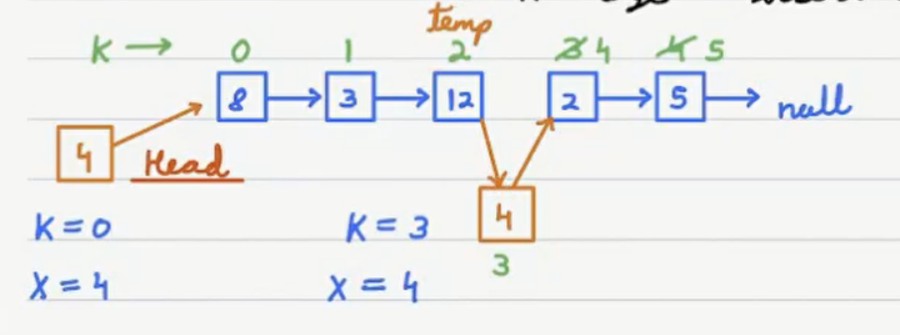 temp
K → 0 1 2 3 4 4 5
8 → 3 → 12 2 → 5 → null
4 Head
4
K = 0 K = 3
3
X = 4 X = 4